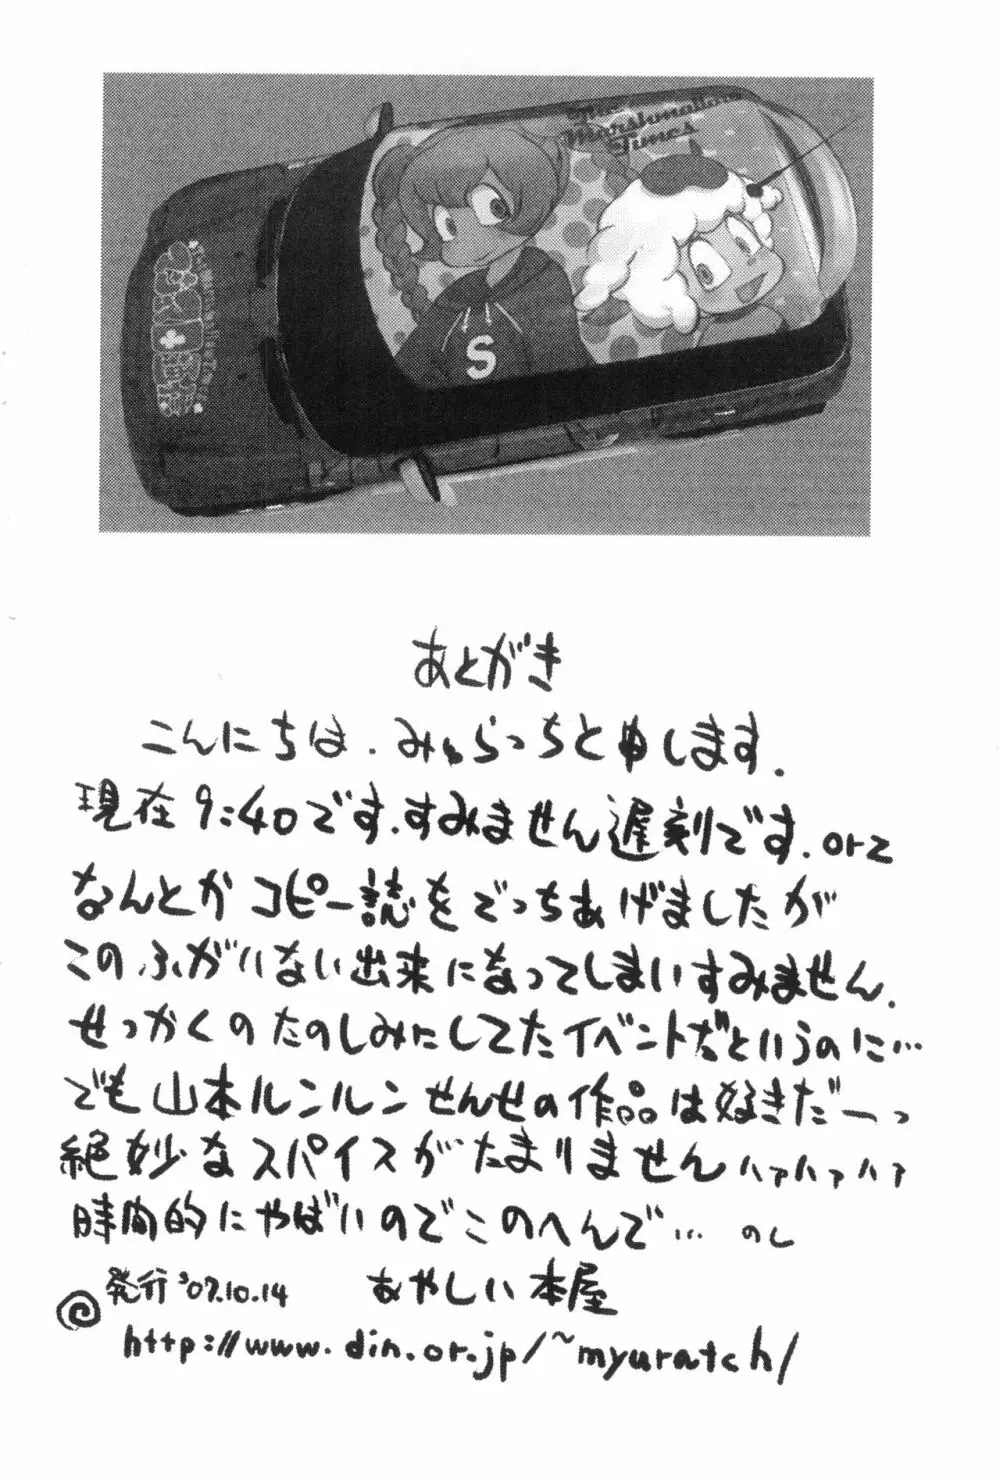 The
Marshmallow
Times
S
あとがき
こんにちは、みゅらっちと申します.
現在9:40です、すみません遅刻です.orz
なんとかコピー誌をでっちあげましたが
このふがいない出来になってしまいすみません.
せっかくのたのしみにしてたイベントだというのに…
でも山本ルンルンせんせの作品は好きだーっ
絶妙なスパイスがたまりませんハァハァハァ
時間的にやばいのでこのへんで… のし
発行 '07.10.14 あやしい本屋
http://www.din.or.jp/~myuratch/